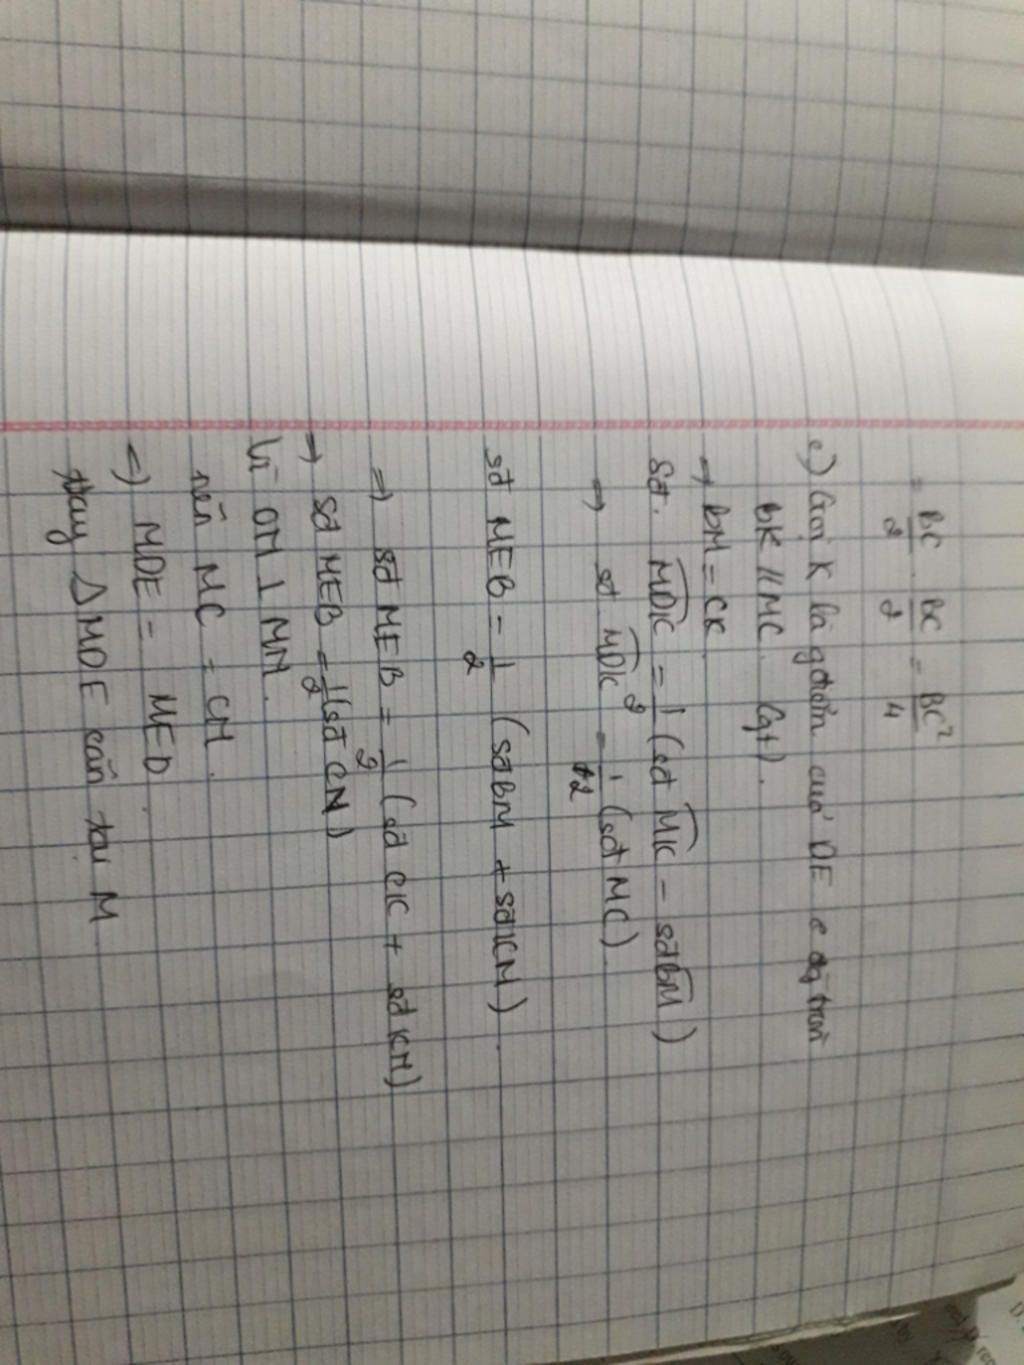 = BC/2 . BC/2 = BC²/4
c) Gọi K là g điểm của DE c đg tròn
BK // MC (gt).
=> BM = CK
Sđ. MDK = 1/2 (sđ MK - sđ BM)
=> sđ. MDK = 1/2 (sđ MC)
sđ MEB = 1/2 (sđ BM + sđ KN).
=> sđ MEB = 1/2 (sđ CK + sđ KN)
=> sđ MEB = 1/2 (sđ CN)
Vì OM ⊥ MN.
nên MC = CN.
=> MDE = MED.
Hay ΔMDE cân tại M